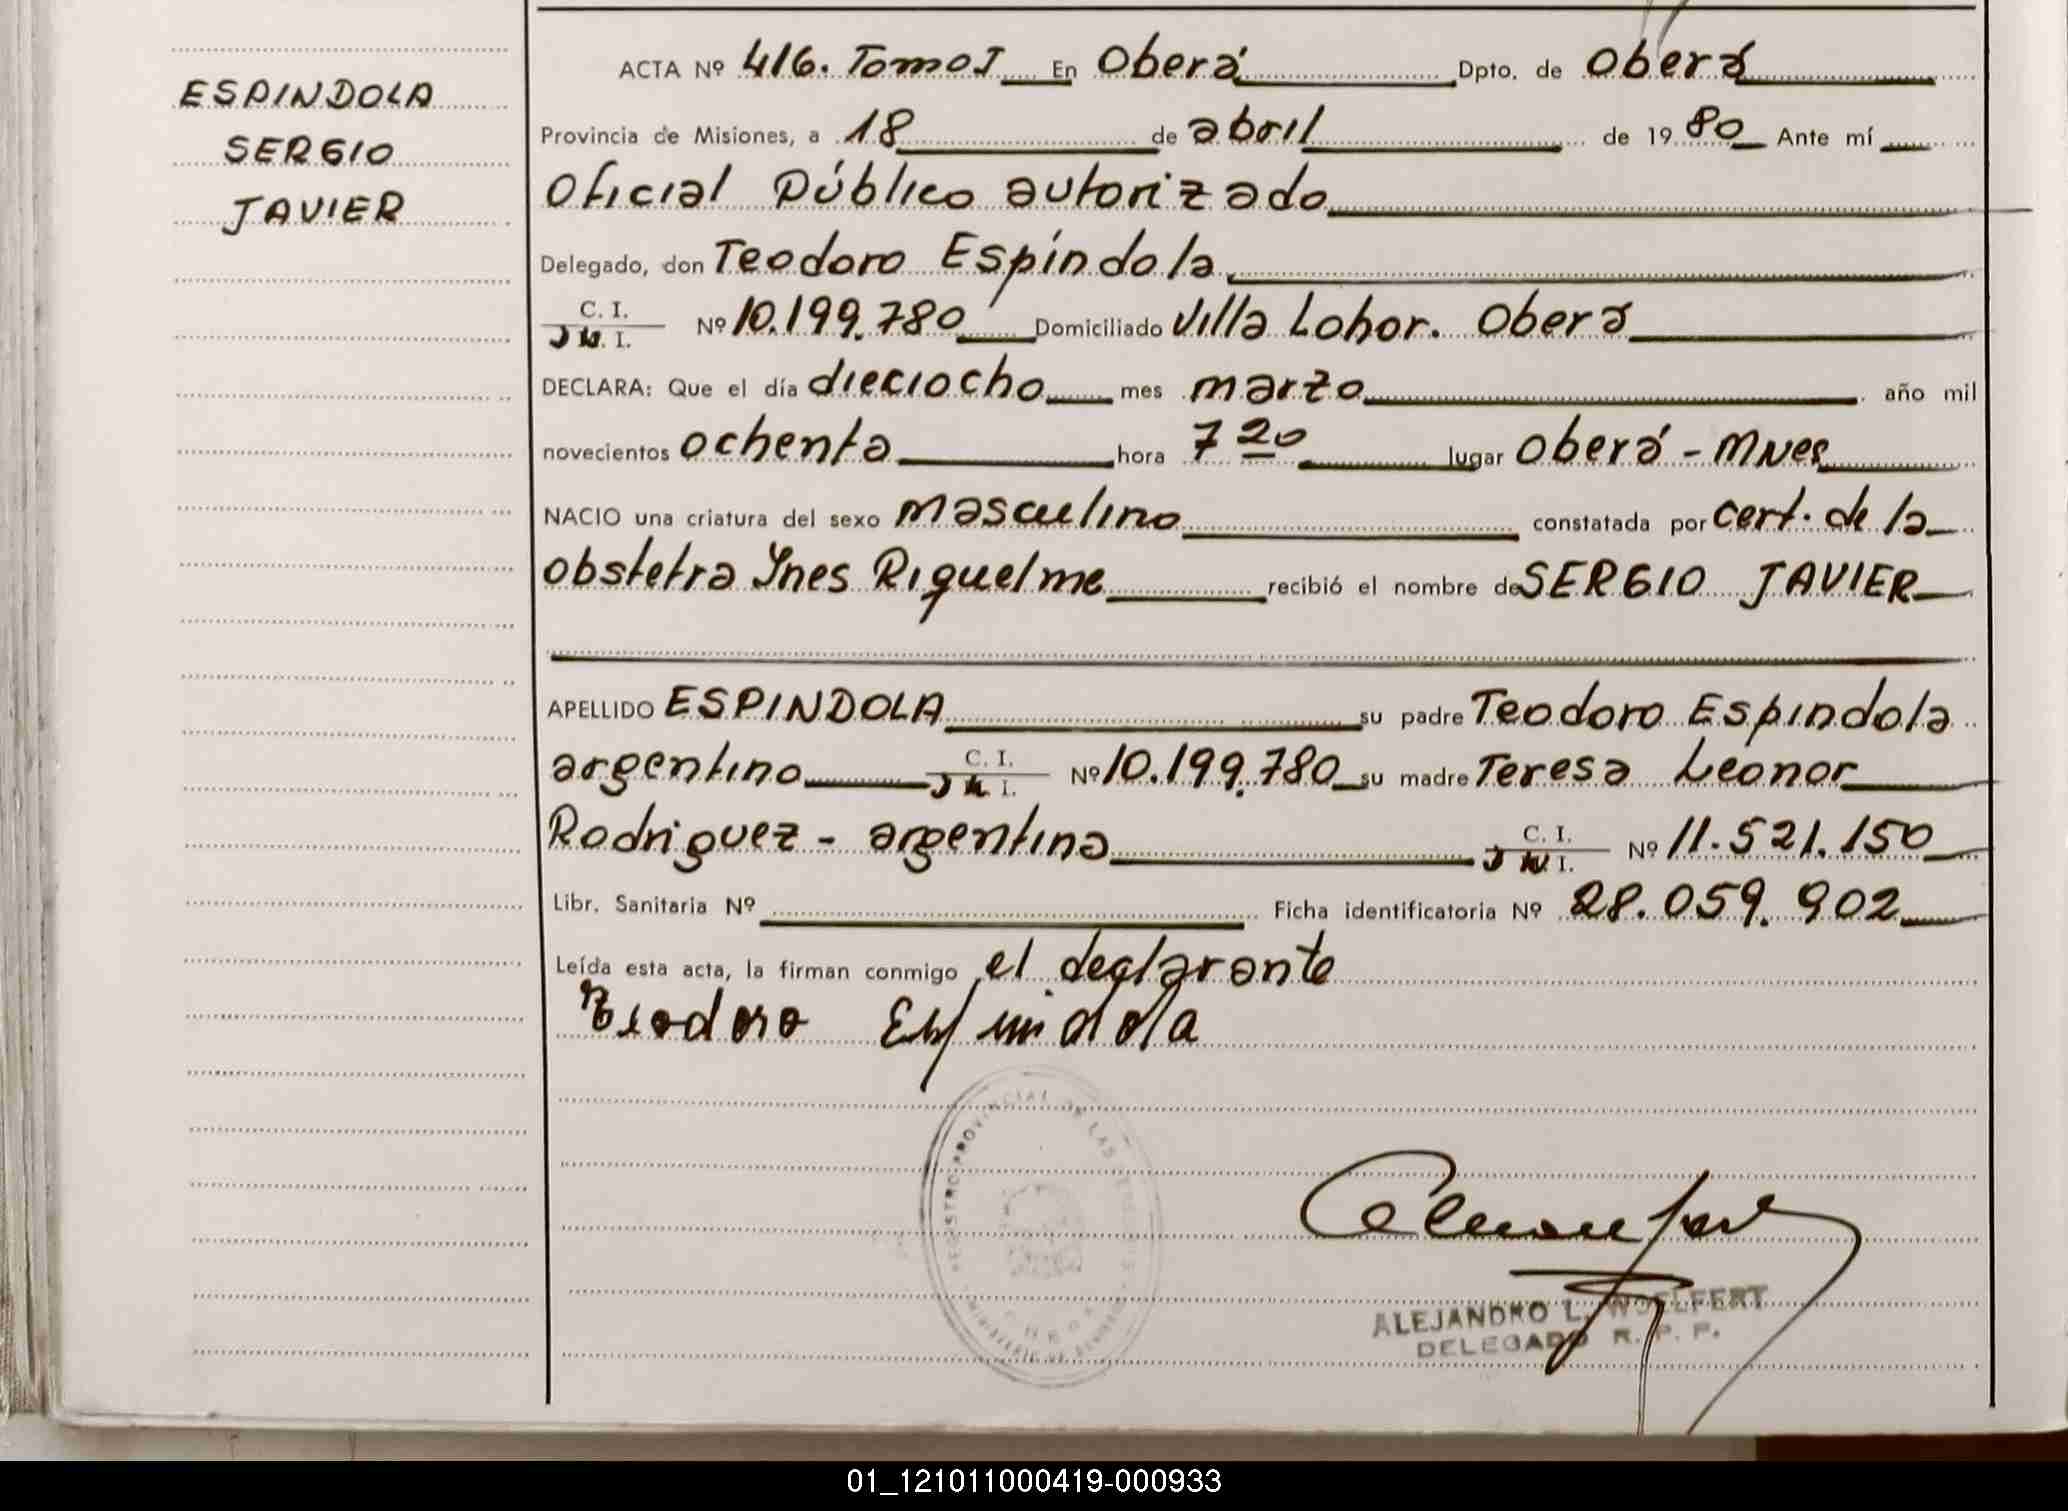 ESPINDOLA
SERGIO
JAVIER
ACTA Nº 416. Tomo I En Oberá Dpto. de Oberá
Provincia de Misiones, a 18 de abril de 1980 Ante mí
Oficial Público autorizado
Delegado, don Teodoro Espíndola
C. I.
D N. I. Nº 10.199.780 Domiciliado Villa Lohor. Oberá
DECLARA: Que el día dieciocho mes marzo año mil
novecientos ochenta hora 7 20 lugar Oberá - Mnes
NACIO una criatura del sexo masculino constatada por cert. de la
obstetra Ynes Riquelme recibió el nombre de SERGIO JAVIER
APELLIDO ESPINDOLA su padre Teodoro Espindola
argentino C. I. Nº 10.199.780 su madre Teresa Leonor
D N. I.
Rodriguez - argentina C. I. Nº 11.521.150
D N. I.
Libr. Sanitaria Nº Ficha identificatoria Nº 28.059.902
Leída esta acta, la firman conmigo el declarante
Teodoro Espindola
REGISTRO PROVINCIAL DE LAS PERSONAS
ALEJANDRO L. WOELFERT
DELEGADO R. P. P.
01_121011000419-000933